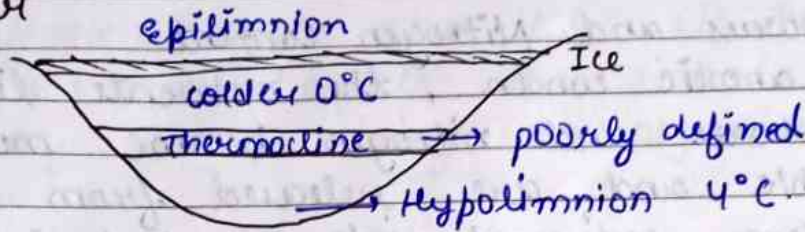 epilimnion
Ice
colder 0°C
Thermocline → poorly defined
→ Hypolimnion 4°C.